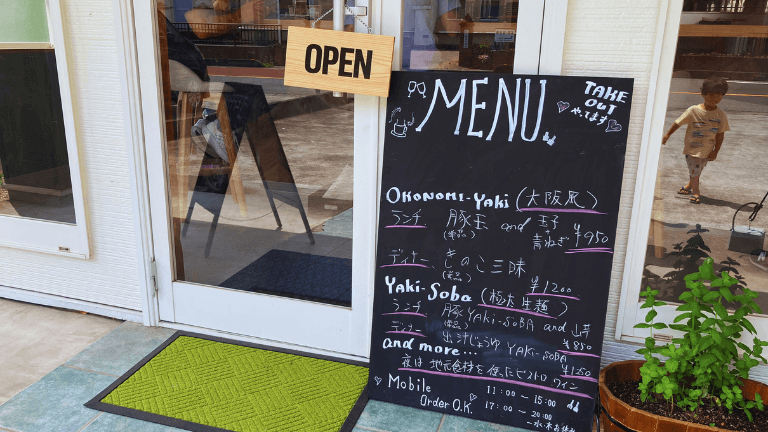 OPEN
MENU
TAKE
OUT
やってます
OKONOMI-YAKI (大阪風)
ランチ 豚玉 and 玉子
(単品) + 青ねぎ ¥950
ディナー きのこ三昧
(単品) ¥1200
YAKI-SOBA (極太生麺)
ランチ 豚YAKI-SOBA and
(単品) ¥850
ディナー 出汁じょうゆ YAKI-SOBA
¥1250
and more...
夜は地元食材を使ったビストロ ワイン
Mobile 11:00 - 15:00
Order O.K. 17:00 - 20:00
-水・木お休み